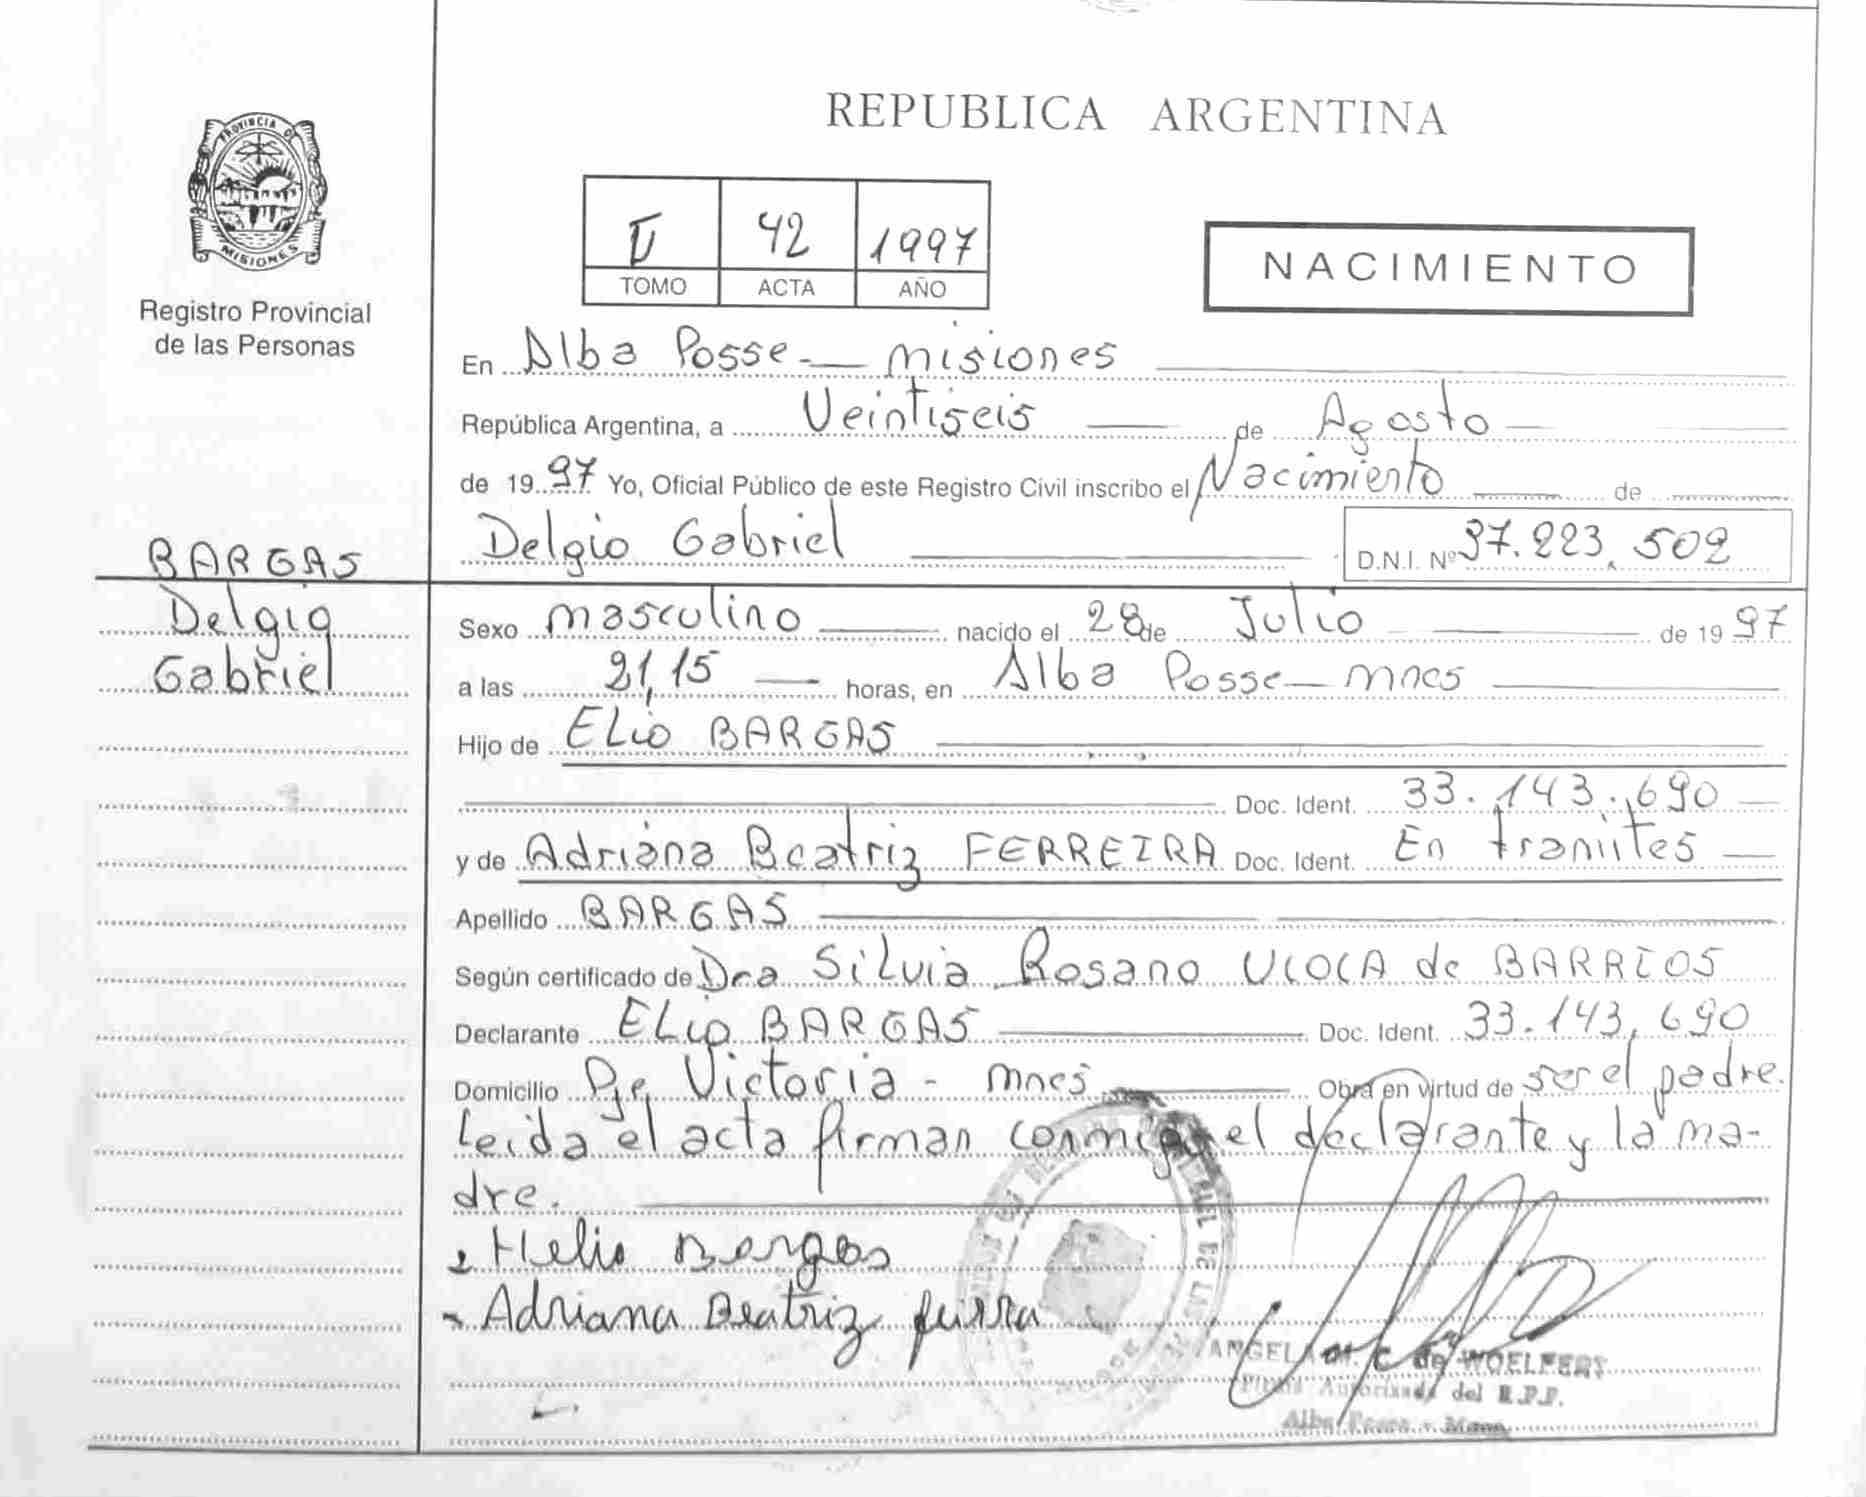 REPUBLICA ARGENTINA
PROVINCIA D
MISIONES
Registro Provincial
de las Personas
42 1997
TOMO ACTA AÑO
NACIMIENTO
En Alba Posse - Misiones
República Argentina, a Veintiseis de Agosto
de 1997 Yo, Oficial Público de este Registro Civil inscribo el Nacimiento de
BARGAS
Delgio Gabriel
D.N.I. Nº 37.223.502
Delgio
Gabriel
Sexo masculino nacido el 28 de Julio de 1997
a las 21,15 horas, en Alba Posse - mnes
Hijo de ELio BARGAS
Doc. Ident. 33.143.690
y de Adriana Beatriz FERREIRA Doc. Ident. En tramites
Apellido BARGAS
Según certificado de Dra Silvia Rosana de BARRIOS
Declarante ELio BARGAS Doc. Ident. 33.143.690
Domicilio Pje Victoria - mnes Obra en virtud de ser el padre.
Leida el acta firman conmigo el declarante y la ma-
dre.
Helio Bargas
Adriana Beatriz
ANGELA M. C. de WOELFERT
Firma Autorizada del R.P.P.
Alba Posse - Mnes.